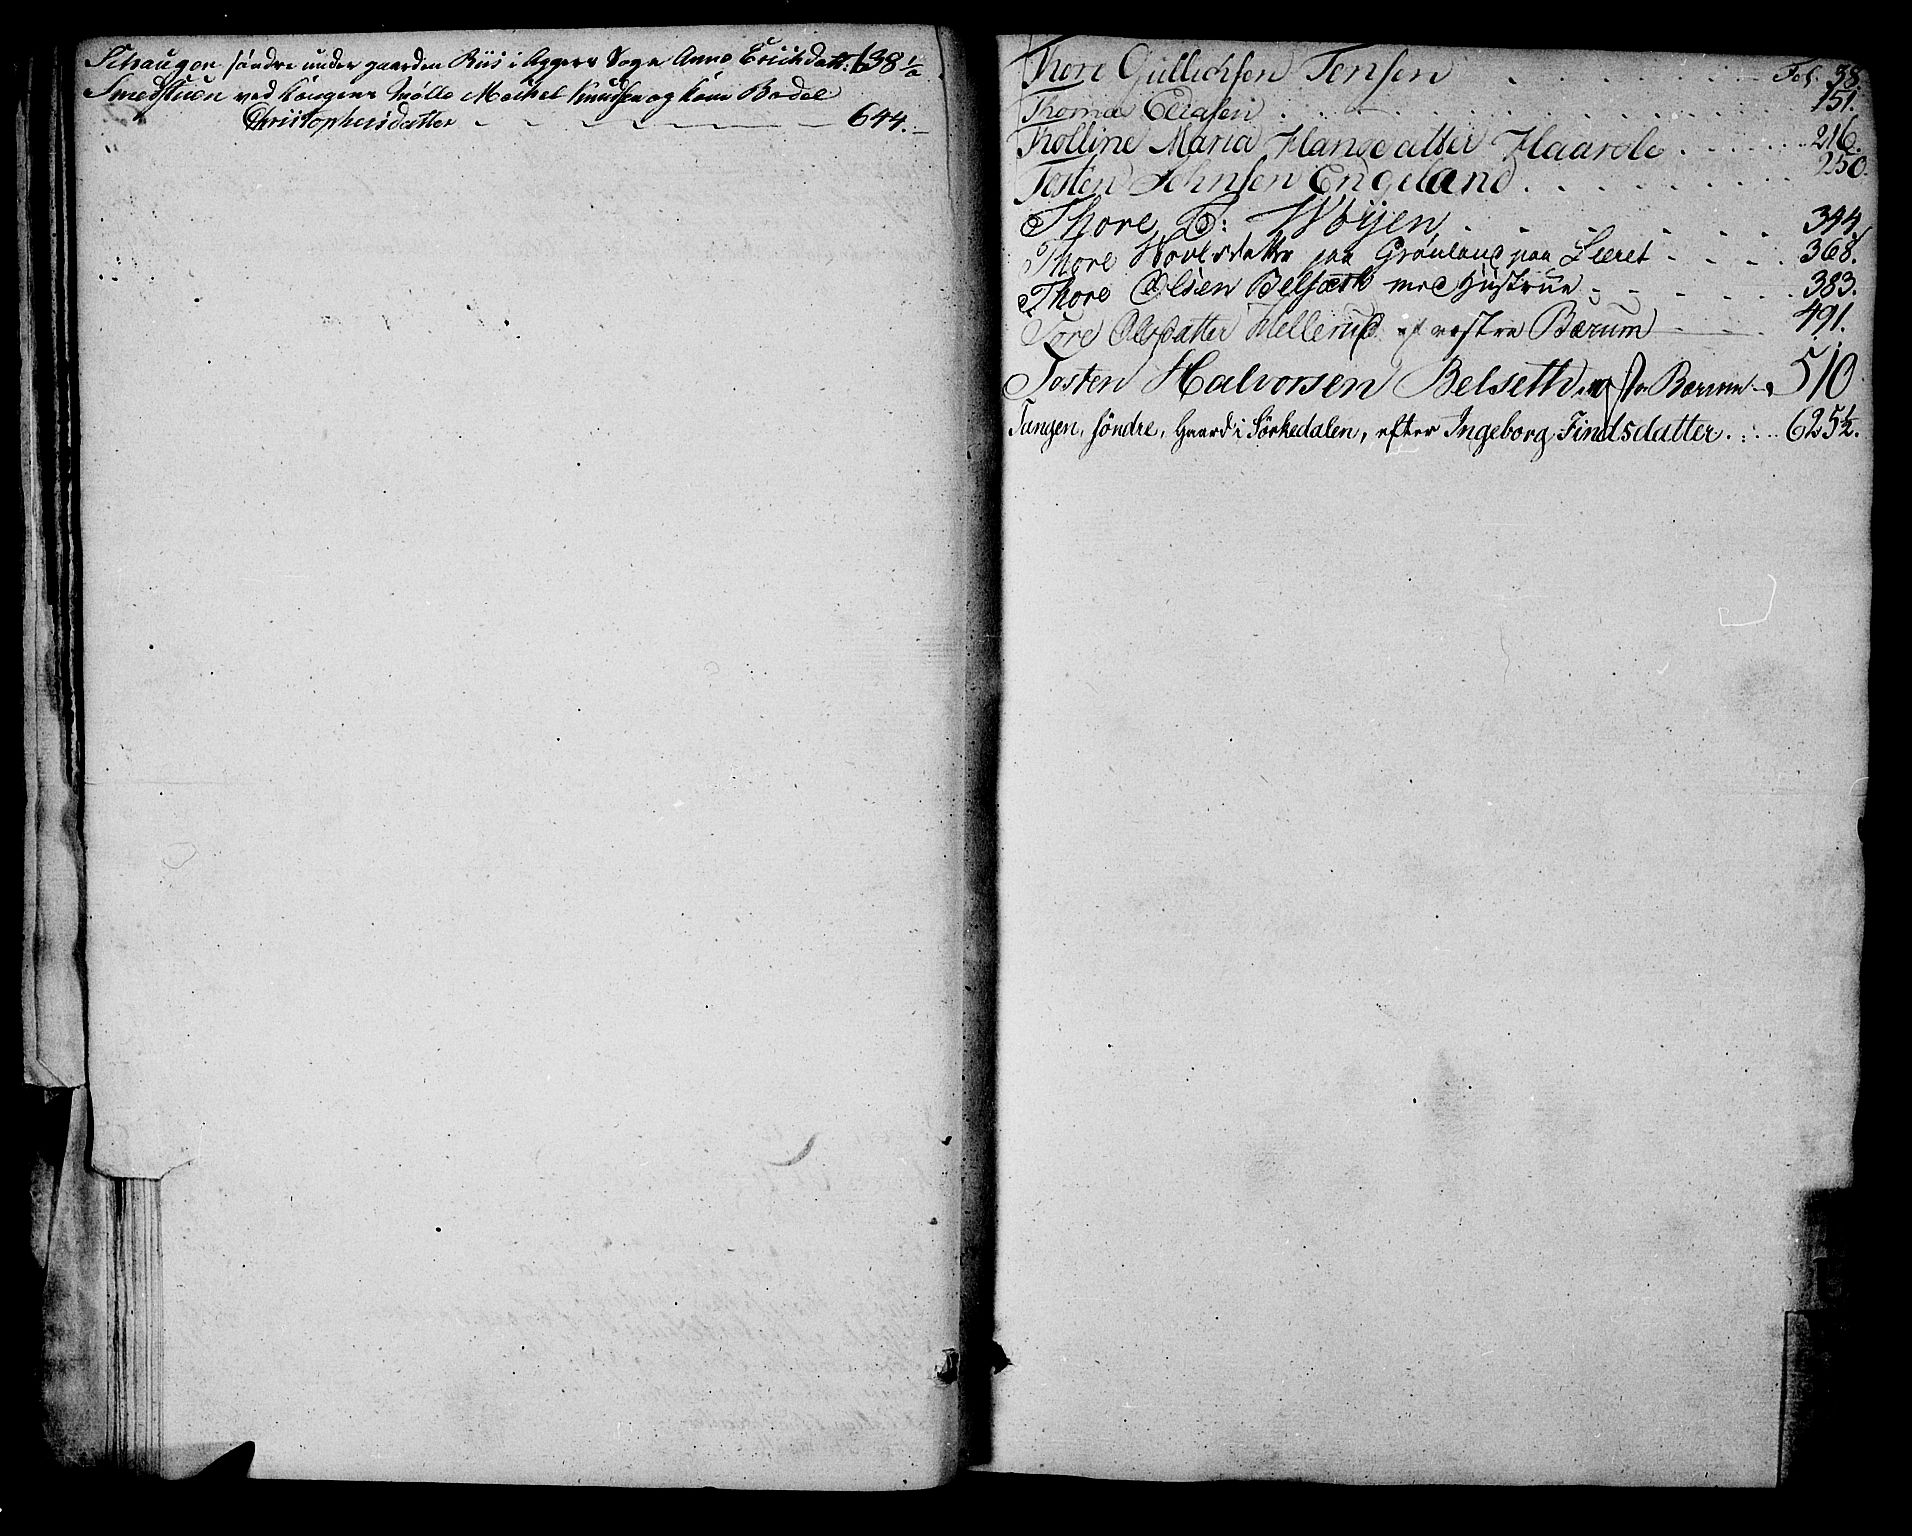 Schaugen søndre under gaarden Riis i Aggers Sogn Anne Erichsdatt: 638 1/2
Smedstuen ved Kongens Mølle Michel Knudsen og kone Bodel
Christophersdatter - - - - - 644.
Thore Gullichsen Jensen Fol. 38.
Thomas 151.
Tholline Maria Hansdatter 216.
Tosten Johnsen Engeland 250.
Thore T: Wøyen 344.
Thore Hovelsdatter paa Grønland paa Leeret 368.
Thore Olsen Belseth med Hustrue 383.
Tore Olsdatter Hellerud af vestre Bærum 491.
Tosten Halvorsen Belseth Bærum 510
Tangen, søndre, Gaard i Sørkedalen, efter Ingeborg Findsdatter. 625½.